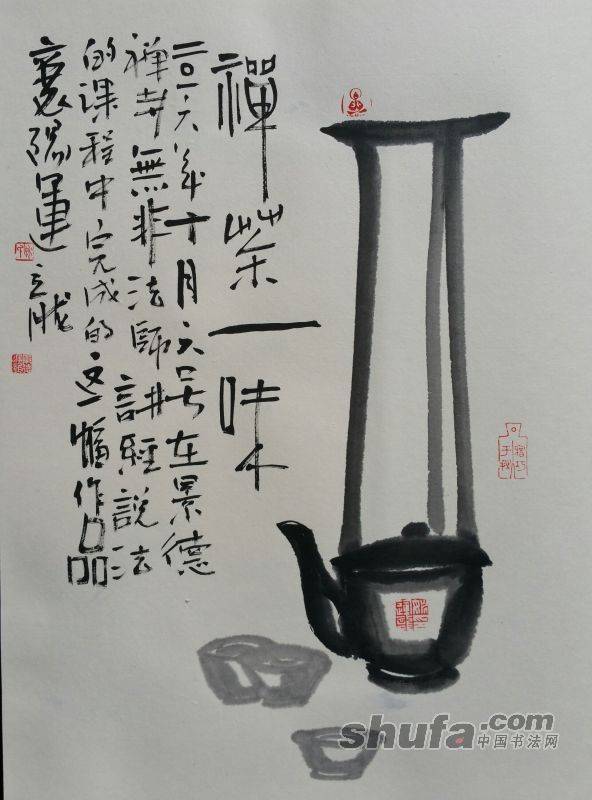 禪茶一味
二〇一六年十月六号在景德
禅寺無非法師講經說法
的课程中完成的这一幅作品
襄陽運
shufa.com
中国书法网